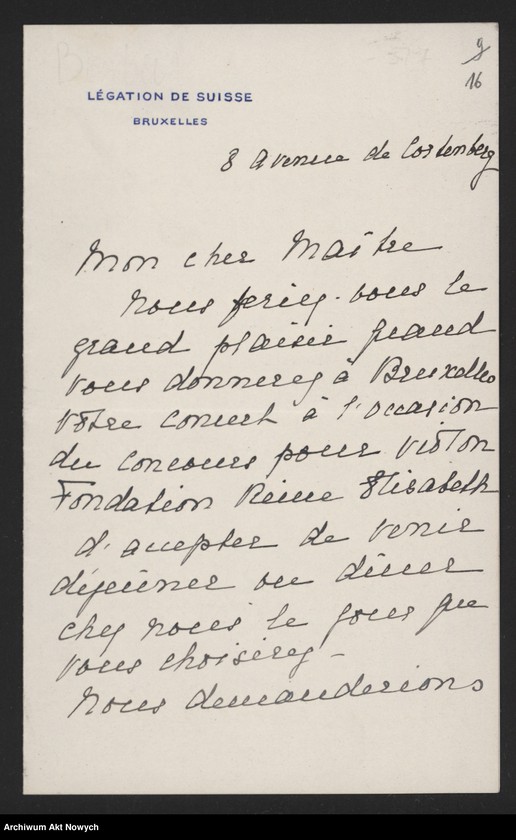 9
16
LÉGATION DE SUISSE
BRUXELLES
8 Avenue de Cortenberg
Mon cher Maître
Nous feriez-vous le
grand plaisir quand
vous donnerez à Bruxelles
votre concert à l'occasion
du concours pour violon
Fondation Reine Elisabeth
d'accepter de venir
déjeûner ou dîner
chez nous le jour que
vous choisirez -
Nous demanderions
Archiwum Akt Nowych